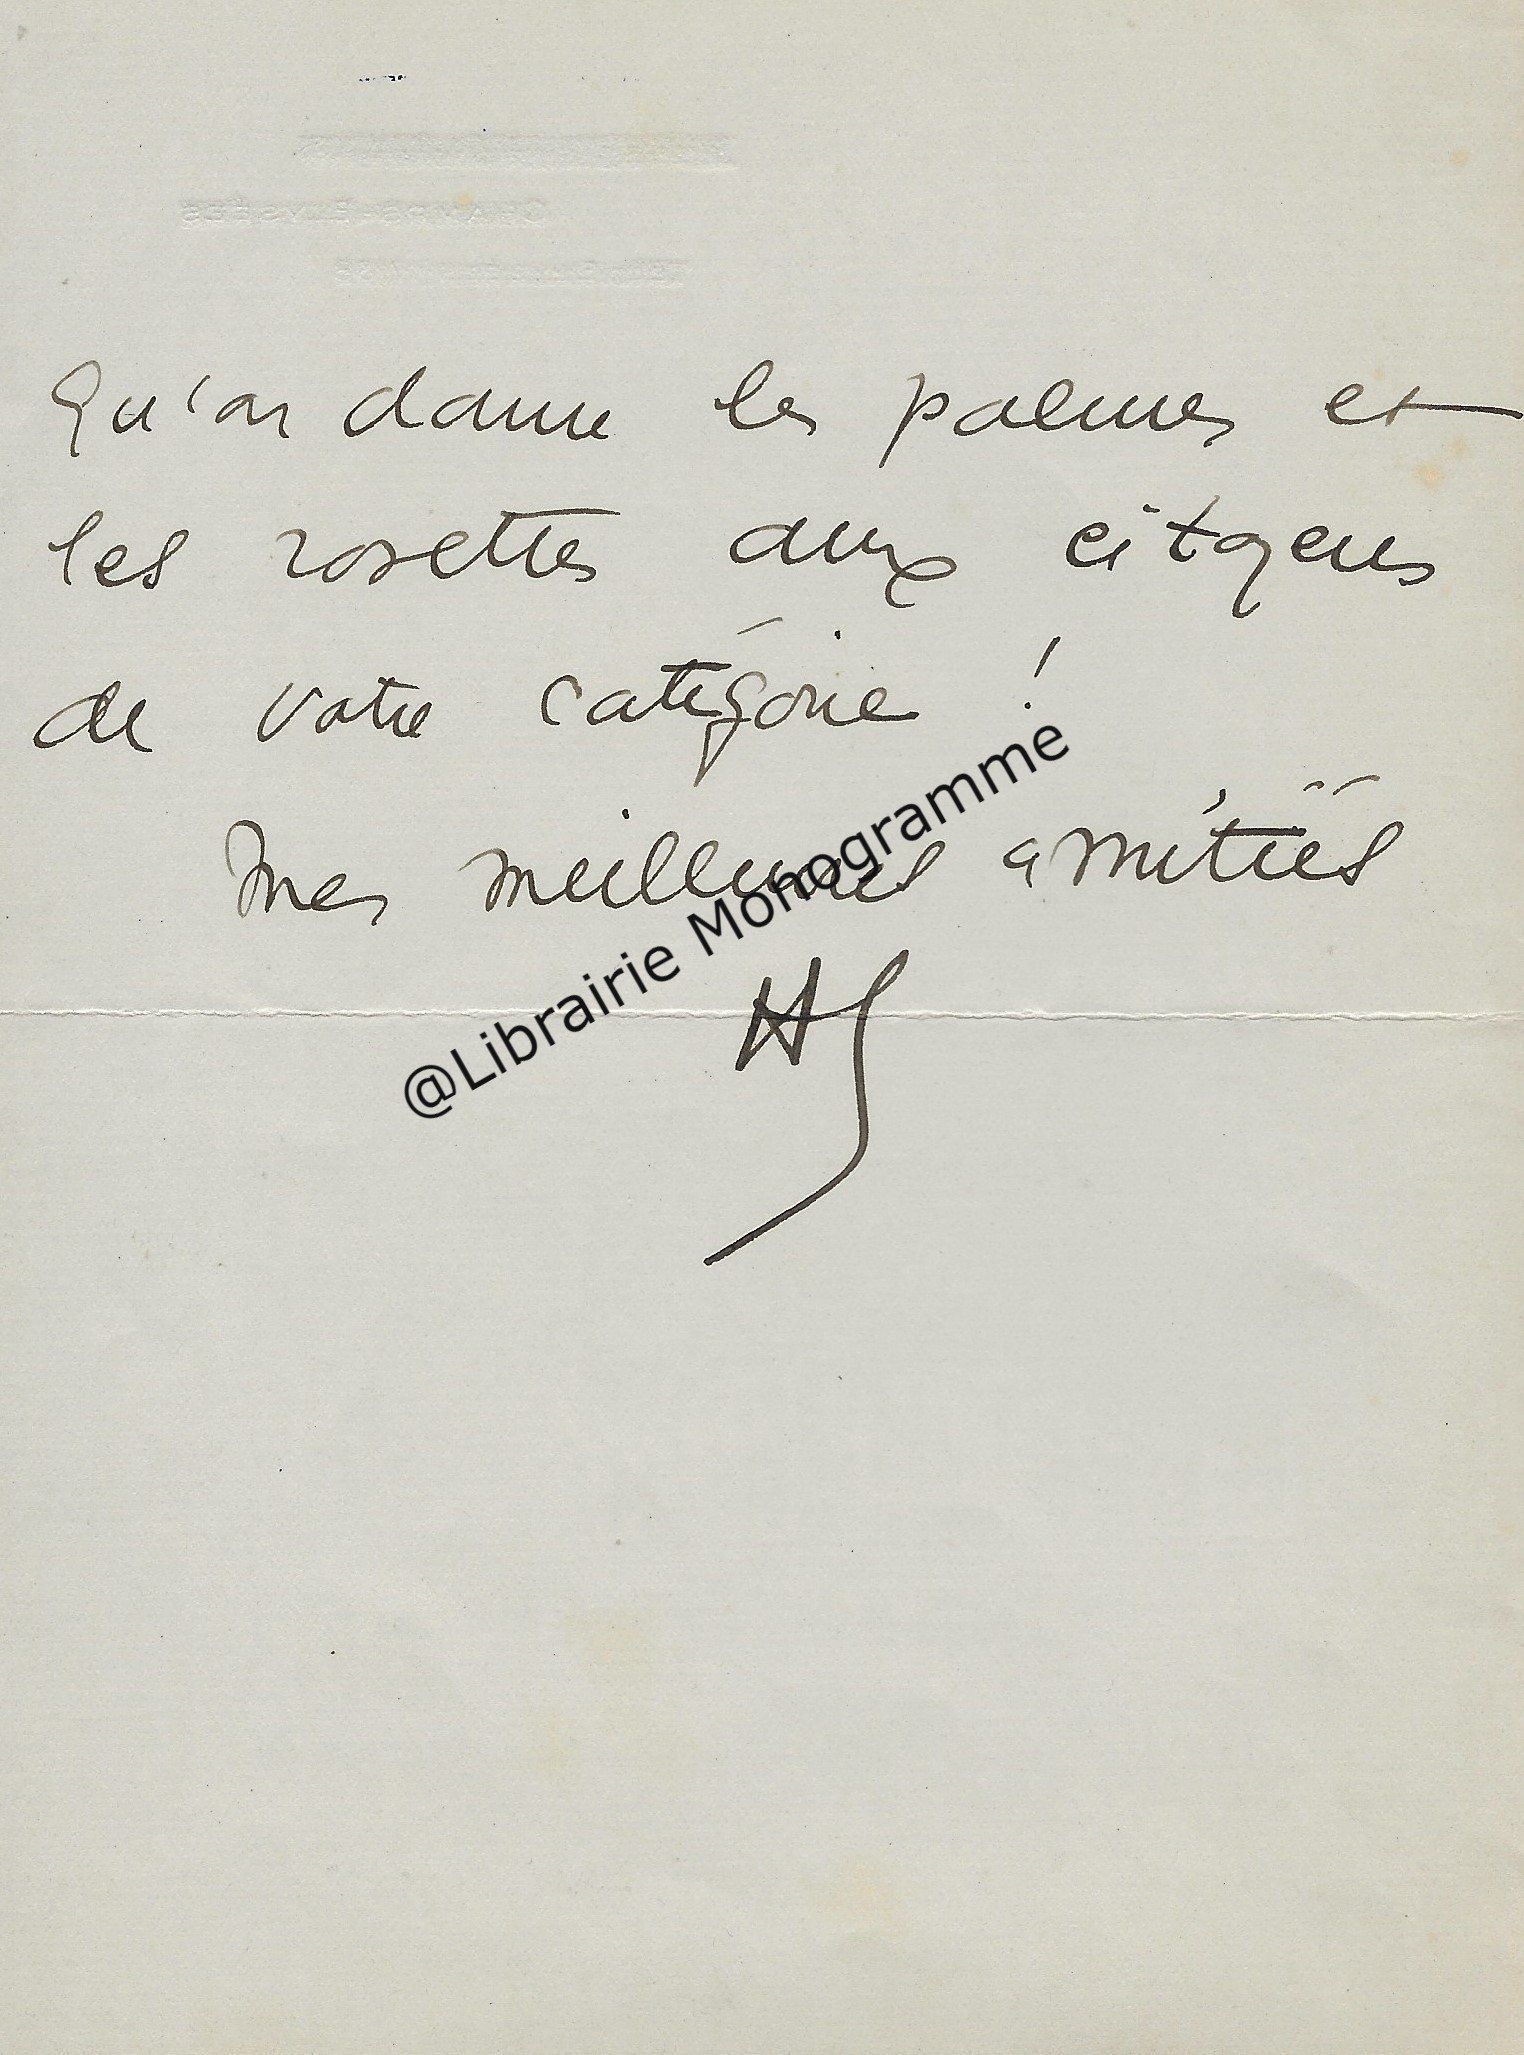 CHAMPS-ELYSÉES
Qu'on donne les palmes et
les rosettes aux citoyens
de votre catégorie !
Mes meilleures amitiés
@Librairie Monogramme